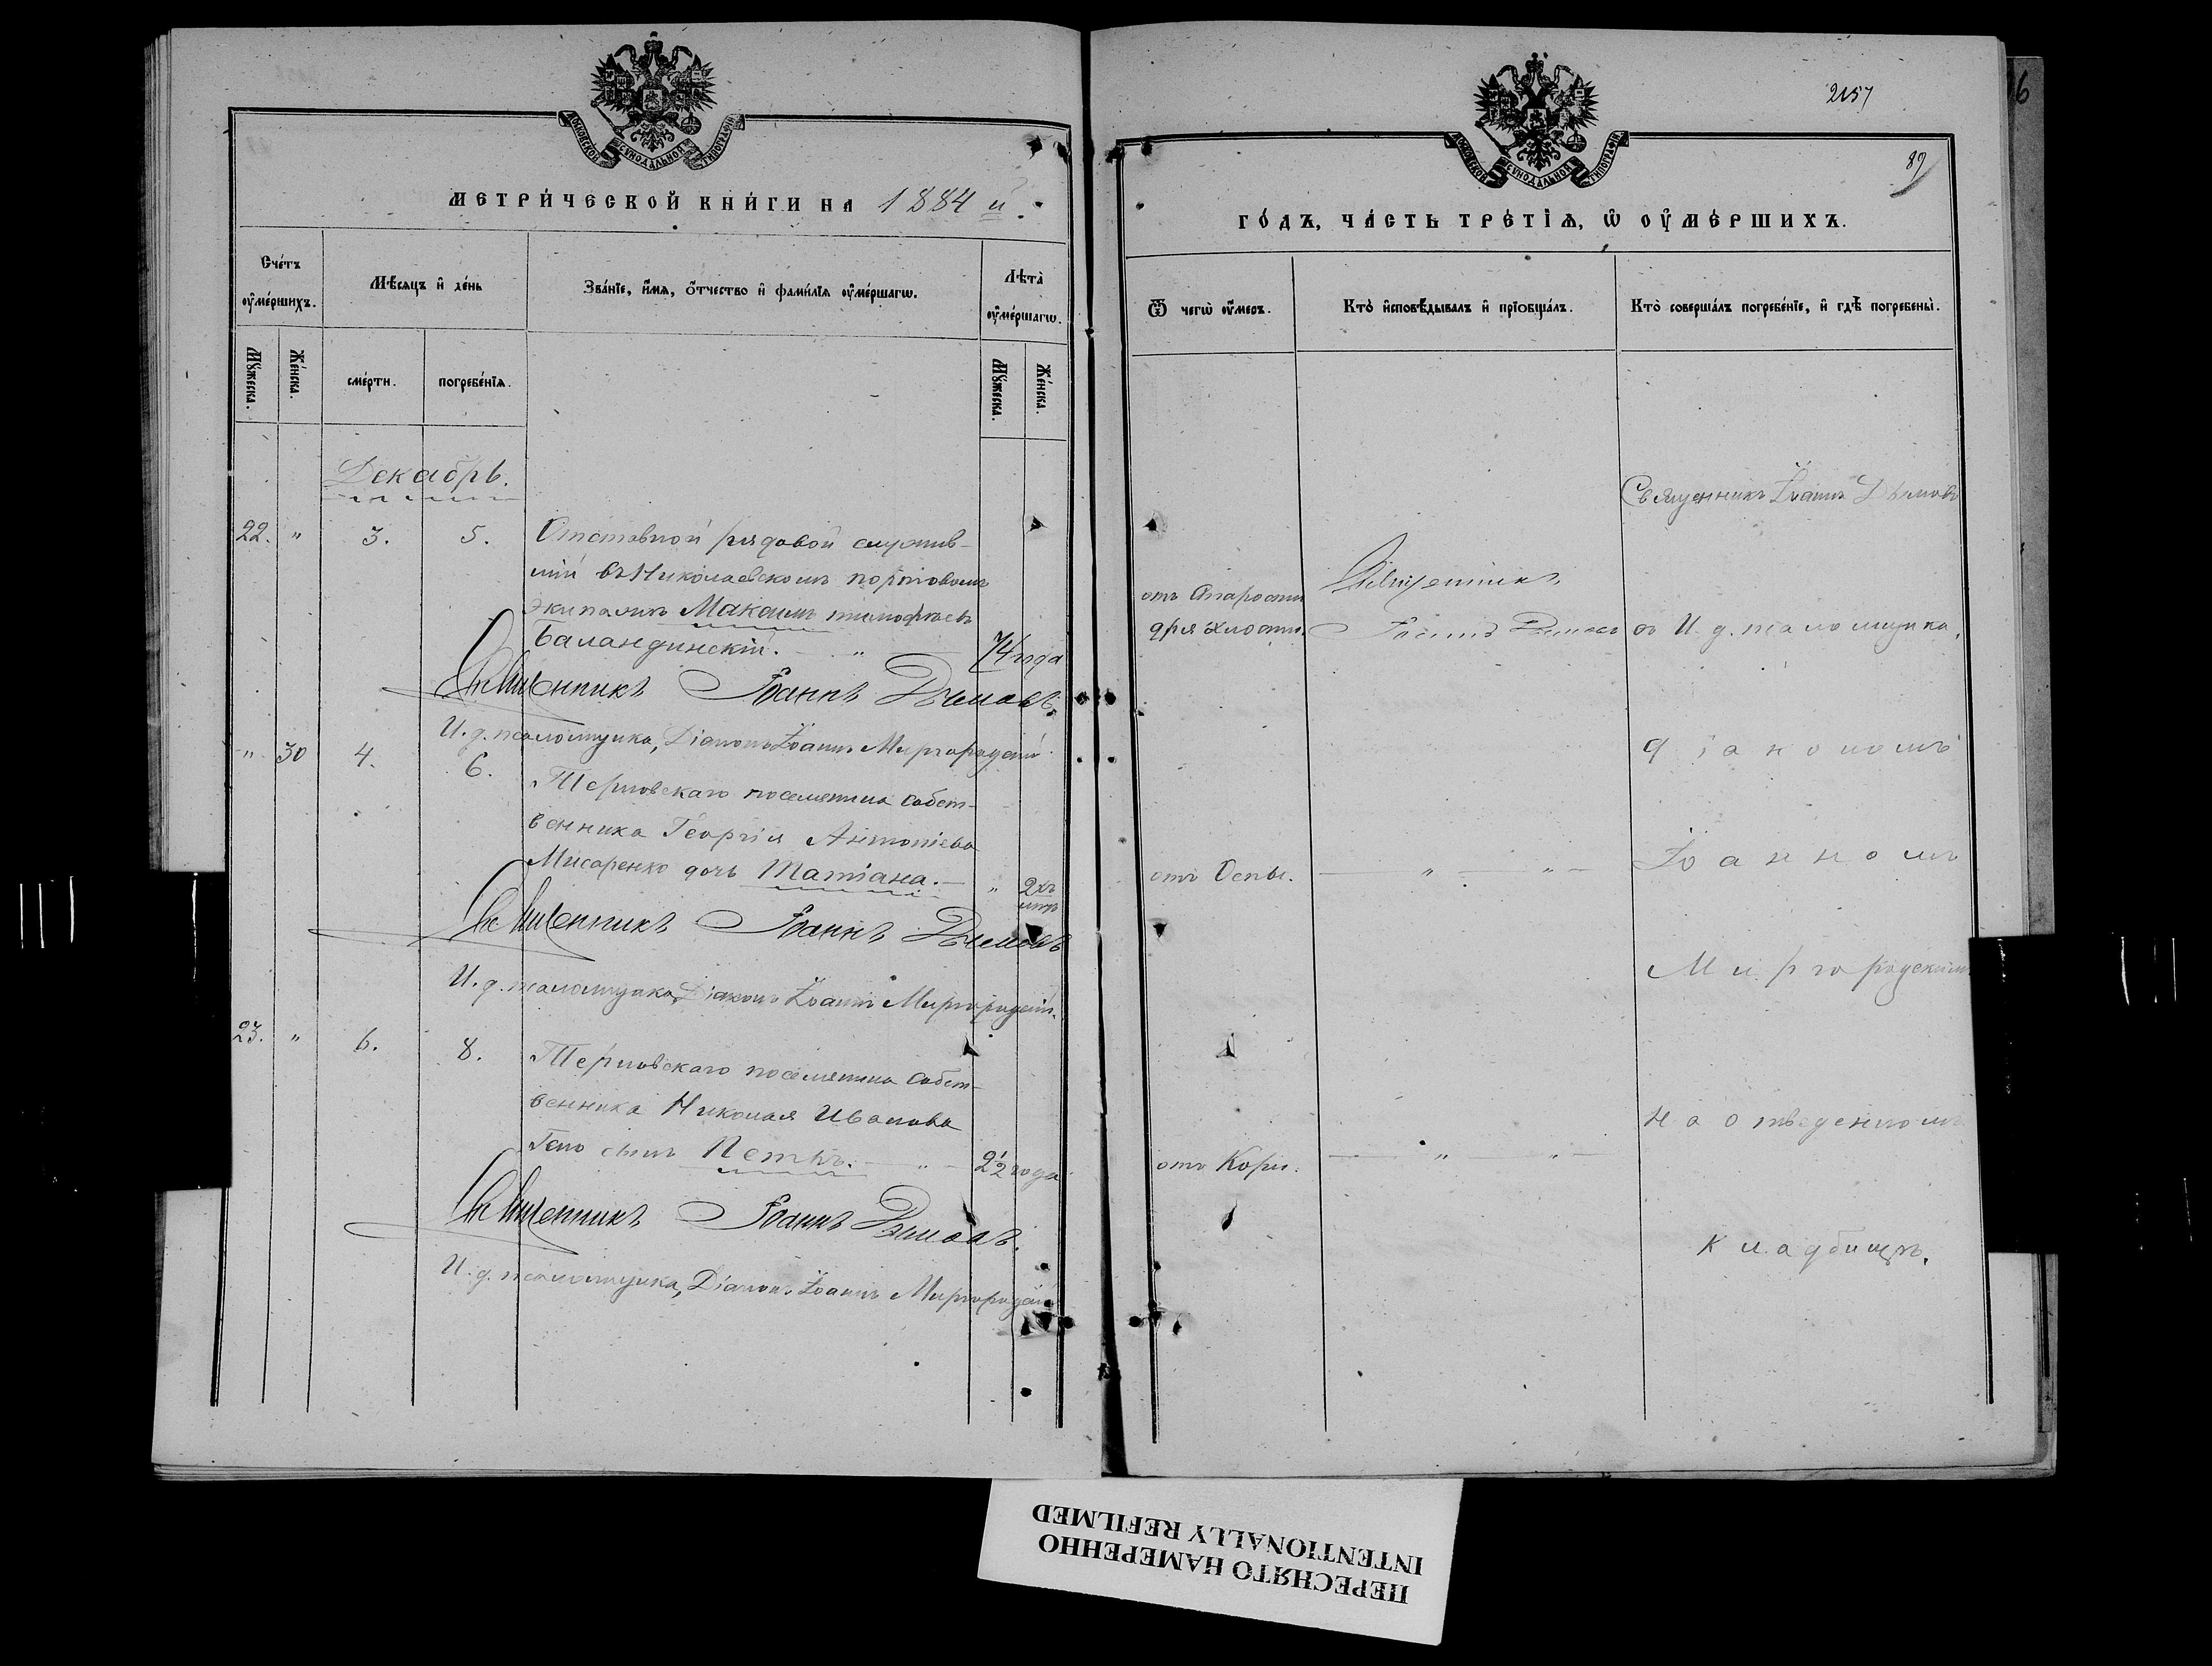 МОСКОВСКОЙ СѴНОДАЛЬНОЙ ТИПОГРАФІИ
МЕТРИЧЕСКОЙ КНИГИ НА 1884 й.
Счетъ оумершихъ.
Мѣсяцъ и день
Званіе, имя, отчество и фамилія оумершагѡ.
Лѣта оумершагѡ.
Мужеска.
Женска.
смерти.
погребенія.
Мужеска.
Женска.
Декабрь.
22. " 3. 5. Отставной рядовой служив-
шій въ Николаевскомъ портовомъ
Экипажѣ Максимъ Тимофѣевъ
Баландинскій. — " — 74 года
Священникъ Іоаннъ Дымовъ.
И. д. псаломщика, Діаконъ Іоаннъ Миргородскій.
" 30 4. 6. Терновскаго поселянина собст-
венника Георгія Антоніева
Мисаренко дочь Татіана. — " 2хъ лѣтъ
Священникъ Іоаннъ Дымовъ
И. д. псаломщика, Діаконъ Іоаннъ Миргородскій.
23. " 6. 8. Терновскаго поселянина собст-
венника Николая Иванова
сынъ Петръ. — " — 2½ года
Священникъ Іоаннъ Дымовъ.
И. д. псаломщика, Діаконъ Іоаннъ Миргородскій
2157
89
16
МОСКОВСКОЙ СѴНОДАЛЬНОЙ ТИПОГРАФІИ
ГОДЪ, ЧАСТЬ ТРЕТІЯ, Ѡ ОУМЕРШИХЪ.
Ѿ чегѡ оумеръ.
Кто исповѣдывалъ и пріобщалъ.
Кто совершалъ погребеніе, и гдѣ погребены.
отъ Старости
дряхлости.
Священникъ
Іоаннъ Дымовъ
отъ Оспы. — " — " —
отъ Кори. — " — " —
Священникъ Іоаннъ Дымовъ
съ И. д. псаломщика,
діакономъ
Іоанномъ
Миргородскимъ
на отведенномъ
кладбищѣ.
ПЕРЕСНЯТО НАМЕРЕННО
INTENTIONALLY REFILMED